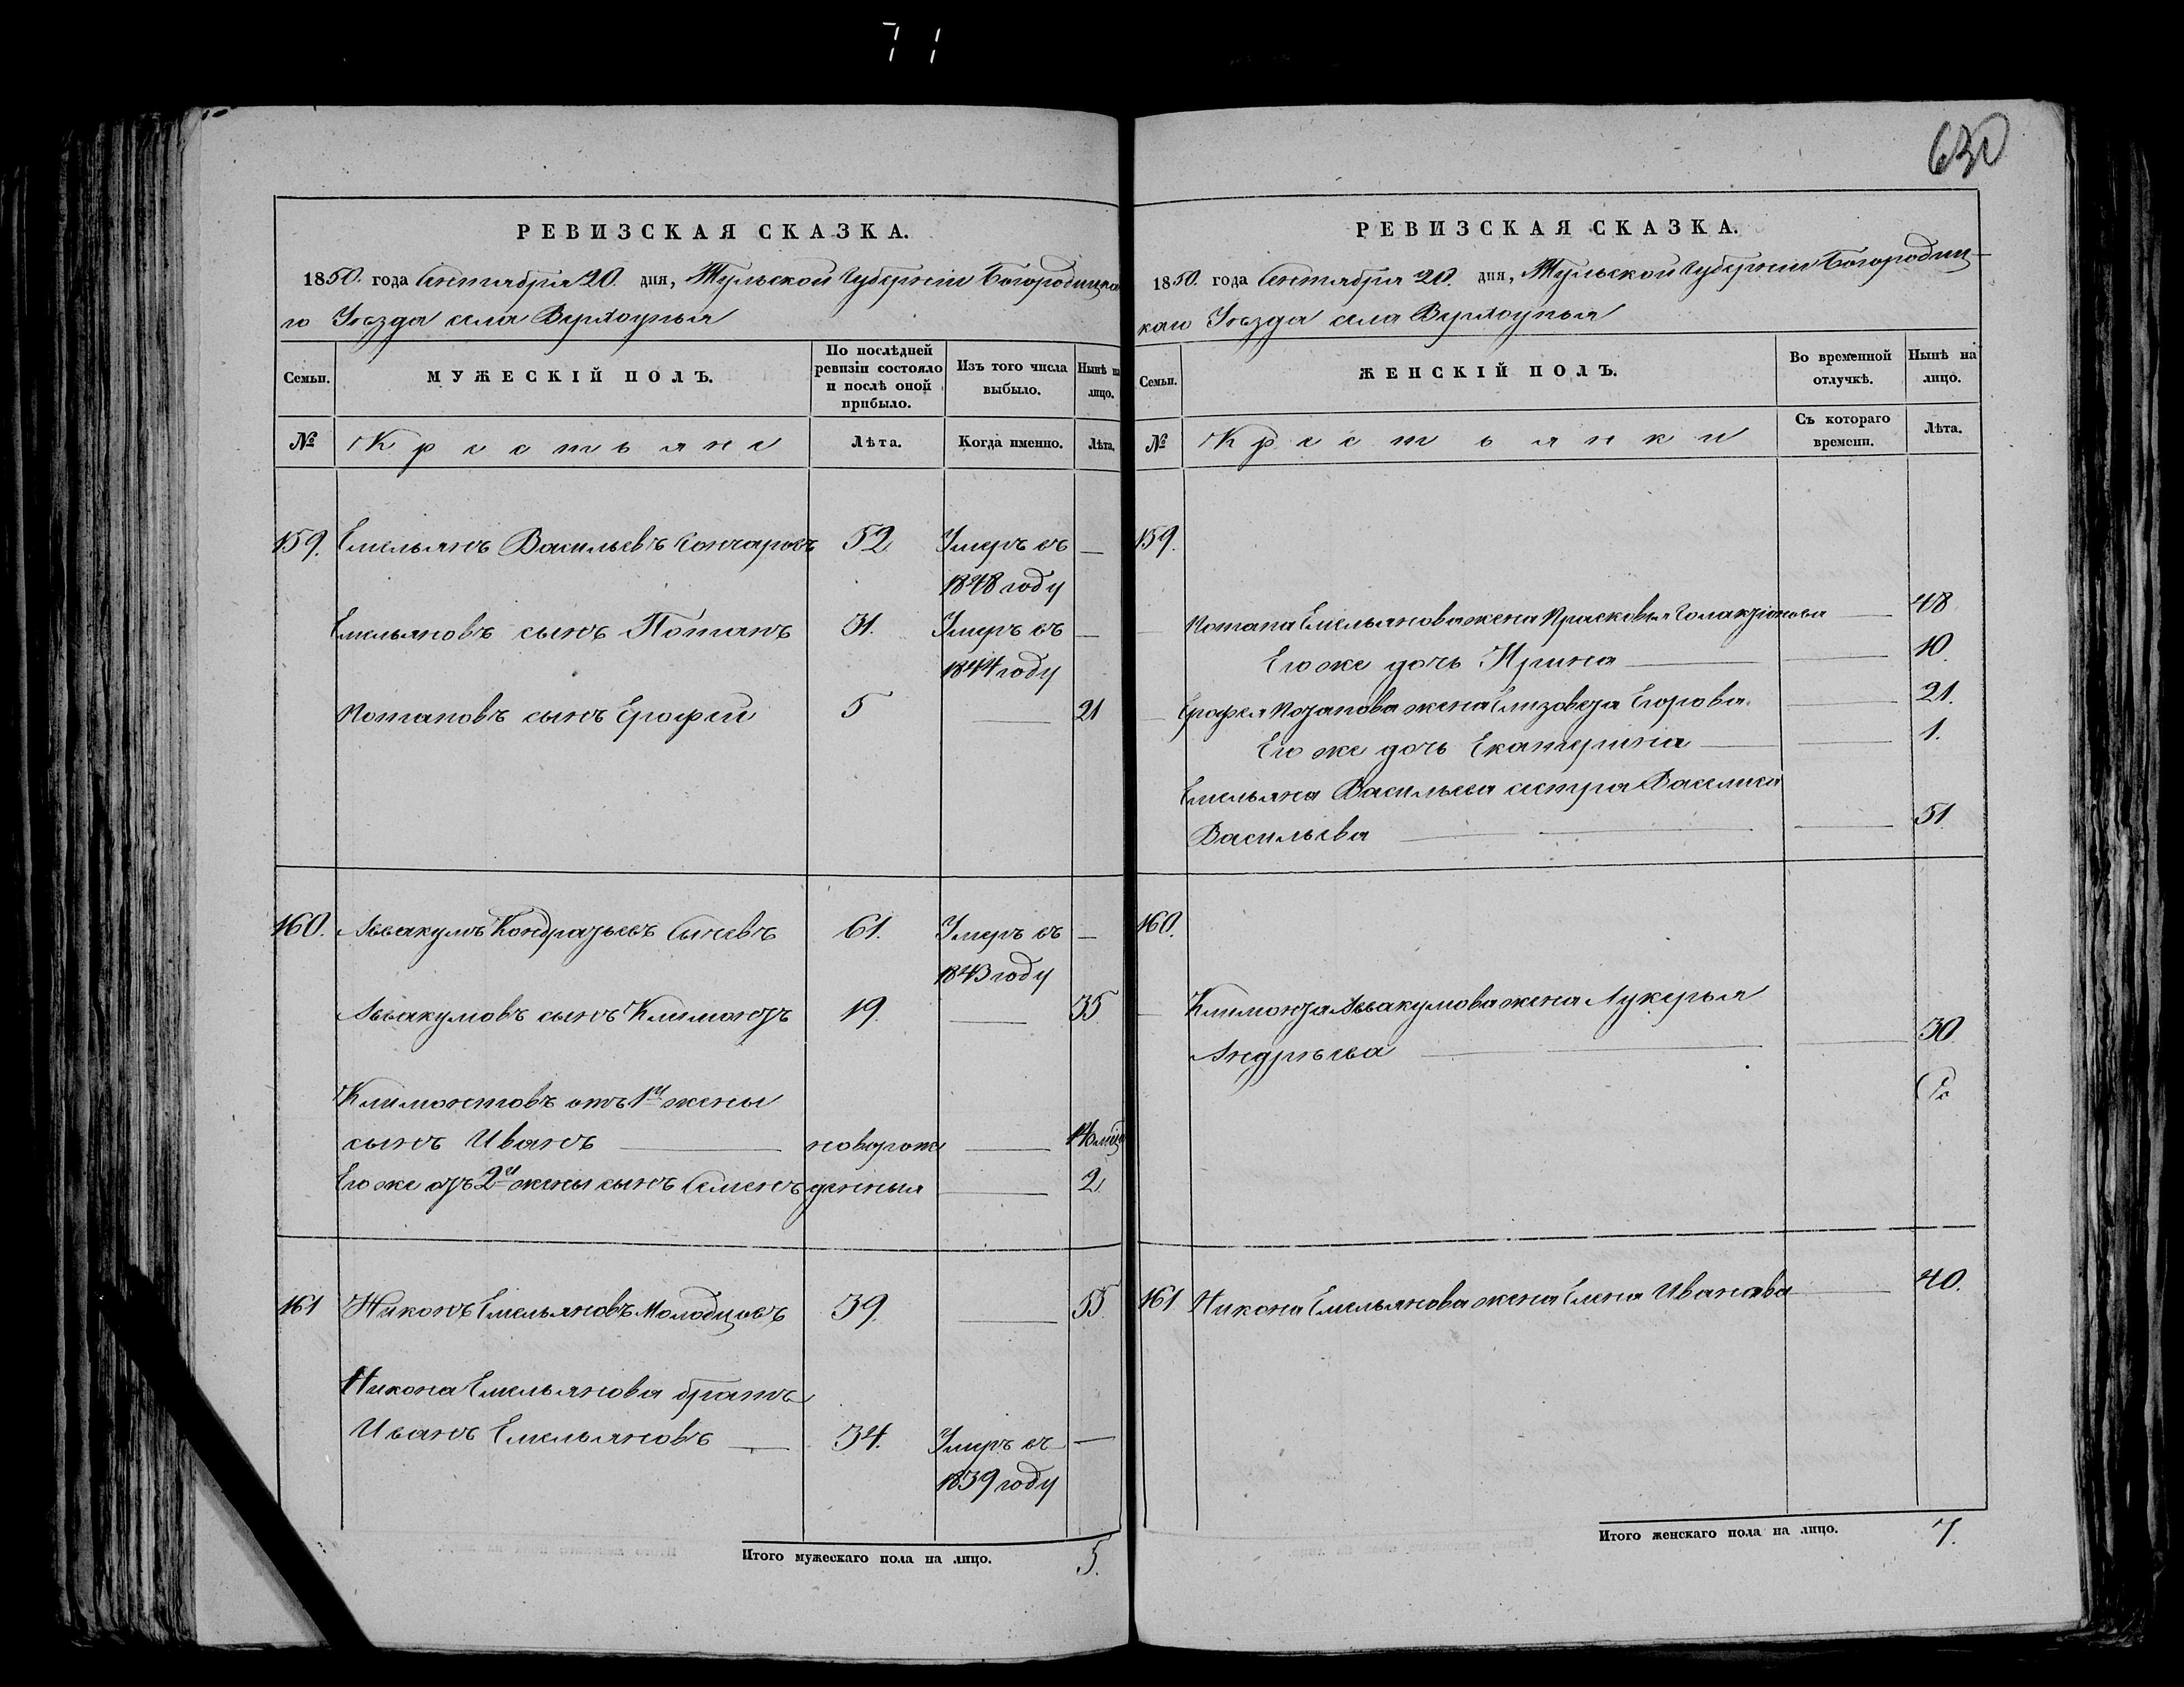 71
630
РЕВИЗСКАЯ СКАЗКА.
1850. года Сентября 20. дня, Тульской Губерніи Богородицка
го Уѣзда села Верхоупья
Семьи.
МУЖЕСКІЙ ПОЛЪ.
По послѣдней ревизіи состояло и послѣ оной прибыло.
Изъ того числа выбыло.
Нынѣ на лицо.
№
Крестьяне
Лѣта.
Когда именно.
Лѣта.
159. Емельянъ Васильевъ Гончаровъ 52 Умеръ въ —
1848 году
Емельяновъ сынъ Потапъ 31. Умеръ въ —
1844 году
Потаповъ сынъ Ерофей 5 — 21
160. Аввакумъ Кондратьевъ Сычевъ 61. Умеръ въ —
1843 году
Аввакумовъ сынъ Климонтъ 19. — 35
Климонтовъ отъ 1й жены
сынъ Иванъ — новорож —
Его же отъ 2й жены сынъ Семенъ денныя — 2
161 Никонъ Емельяновъ Молодцовъ 39. — 55.
Никона Емельянова братъ
Иванъ Емельяновъ — 34. Умеръ въ —
1839 году
Итого мужескаго пола на лицо. 5.
РЕВИЗСКАЯ СКАЗКА.
1850. года Сентября 20. дня, Тульской Губерніи Богородиц-
каго Уѣзда села Верхоупья
Семьи.
ЖЕНСКІЙ ПОЛЪ.
Во временной отлучкѣ.
Нынѣ на лицо.
№
Крестьянки
Съ котораго времени.
Лѣта.
159.
Потапа Емельянова жена Прасковья Галактіонова — 48
Его же дочь Ирина — 10.
Ерофея Потапова жена Елизовета Егорова. — 21.
Его же дочь Екатерина — 1.
Емельяна Васильева сестра Василиса
Васильева — 51.
160.
Климонта Аввакумова жена Лукерья
Андрѣева — 30
161 Никона Емельянова жена Елена Иванова — 40.
Итого женскаго пола на лицо. 7.